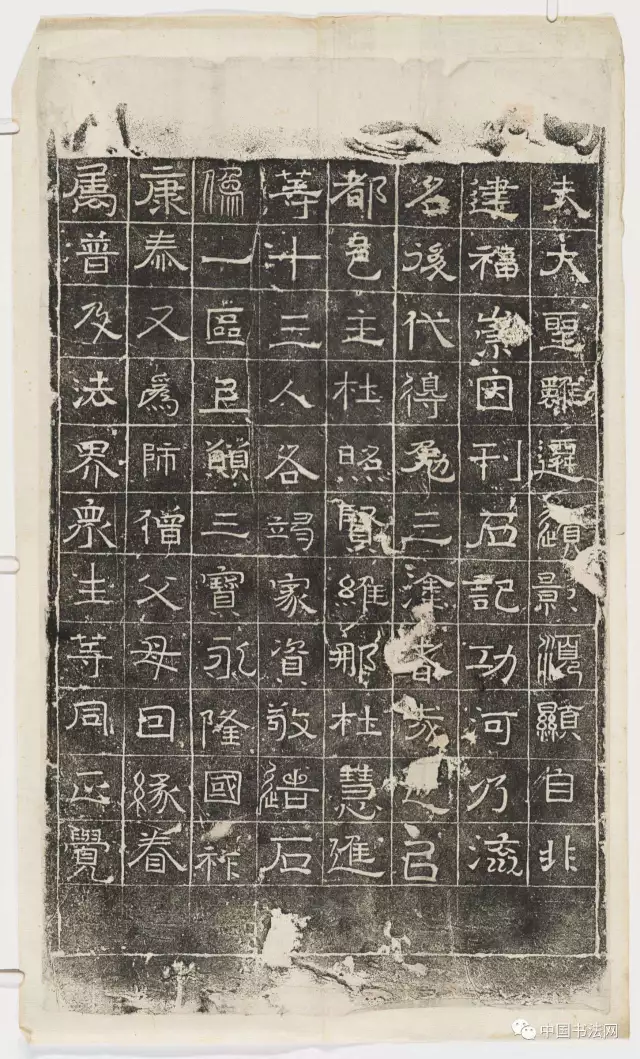 夫大聖雖遷顗影湏顯自非
建福崇因刊石記功河乃流
名後代得勉三塗者哉邑
都邑主杜照賢維那杜慧進
等十三人各竭家資敬造石
像一區上願三寶永隆國祚
康泰又為師僧父母因緣眷
属普及法界衆生等同正覺
中国书法网